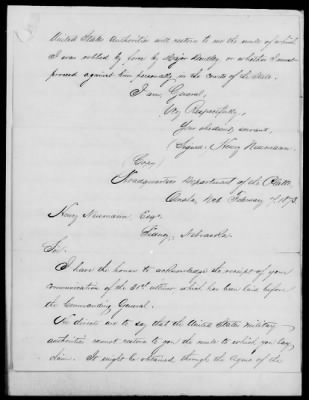 United States Authorities will return to me the mule of which
I was robbed by force by Major Dudley or whether I must
proceed against him personally in the courts of the State.
I am, General,
Very Respectfully,
Your obedient servant,
(Signed) Henry Neumann.
(Copy)
Headquarters Department of the Platte,
Omaha, Neb. February 7,
Henry Neumann, Esqr.
Sidney, Nebraska.
Sir:
I have the honor to acknowledge the receipt of your
communication of the 31st ultimo which has been laid before
the Commanding General.
He directs me to say that the United States military
authorities cannot return to you the mule to which you lay
claim. It might be obtained through the agency of the